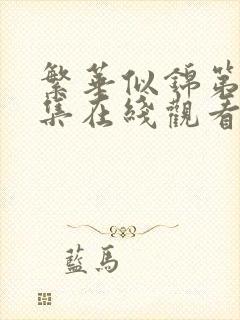 繁華似錦第
集在綫觀看
藍馬